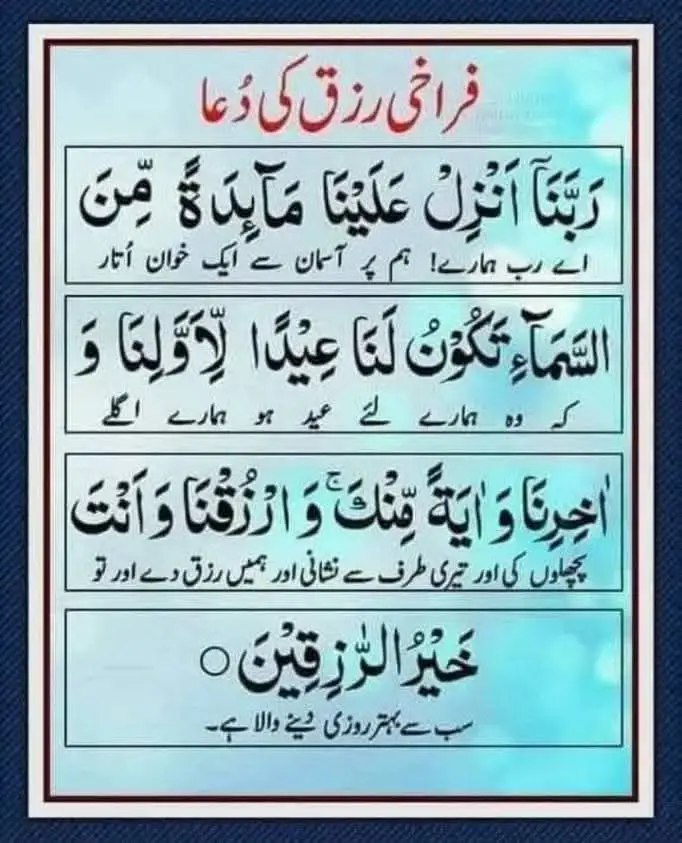 فراخی رزق کی دُعا
رَبَّنَاۤ اَنْزِلْ عَلَیْنَا مَآىِٕدَةً مِّنَ
اے رب ہمارے! ہم پر آسمان سے ایک خوان اُتار
السَّمَآءِ تَكُوْنُ لَنَا عِیْدًا لِّاَوَّلِنَا وَ
کہ وہ ہمارے لئے عید ہو ہمارے اگلے
اٰخِرِنَا وَ اٰیَةً مِّنْكَۚ وَ ارْزُقْنَا وَ اَنْتَ
پچھلوں کی اور تیری طرف سے نشانی اور ہمیں رزق دے اور تو
خَیْرُ الرّٰزِقِیْنَ ○
سب سے بہتر روزی دینے والا ہے۔